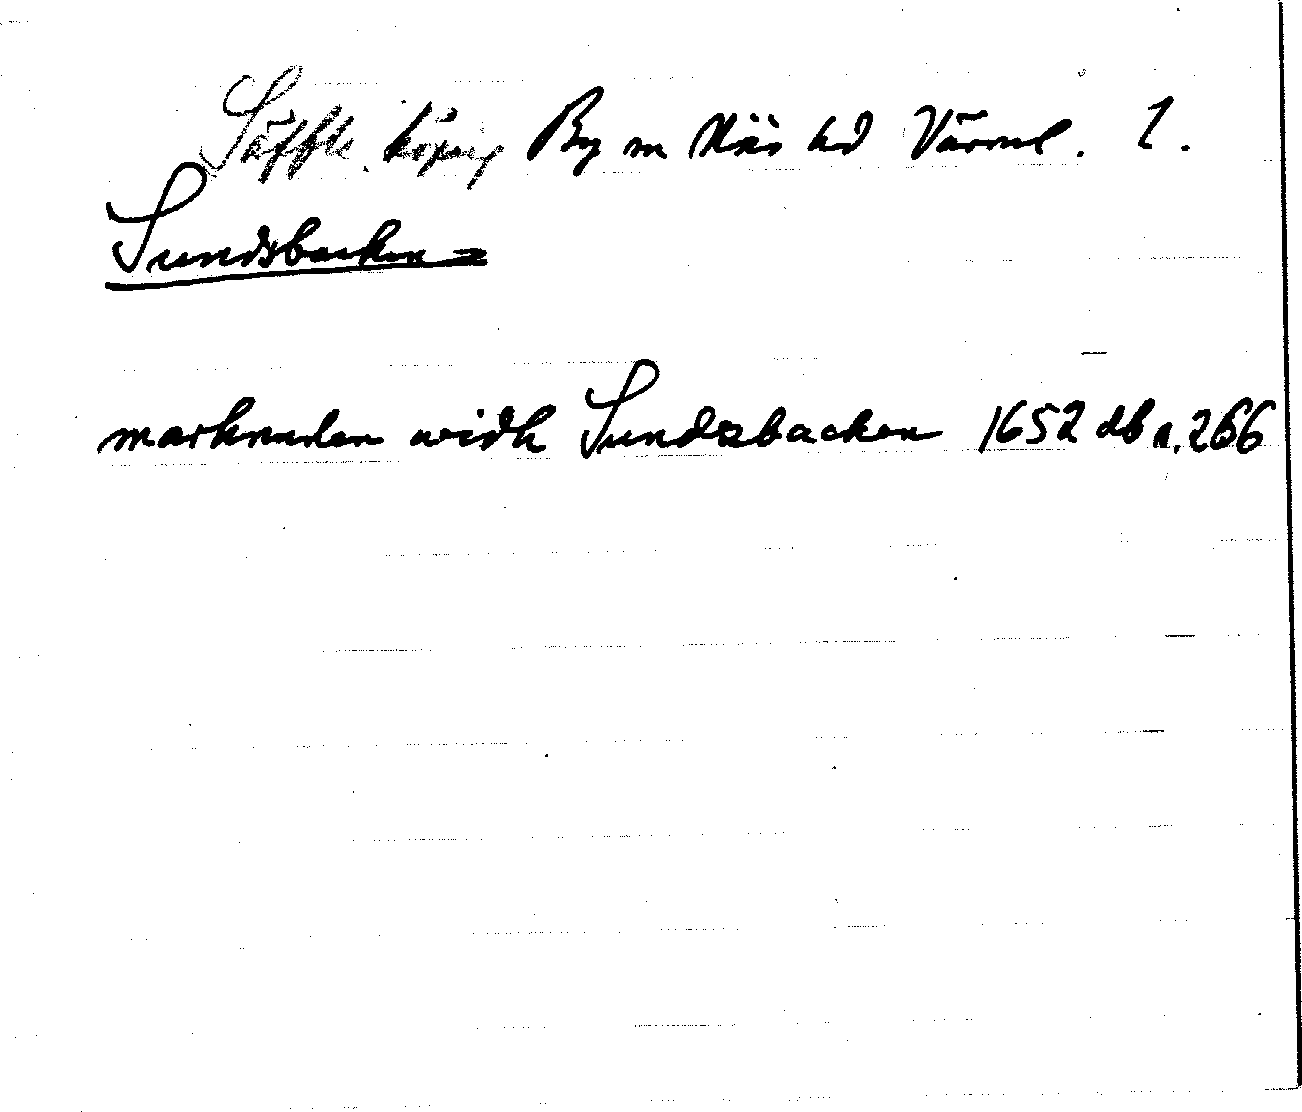 Säffle köping By sn Näs hd Värml. l.
Sundsbacken =
marknaden widh Sundzbacken 1652 db n. 266